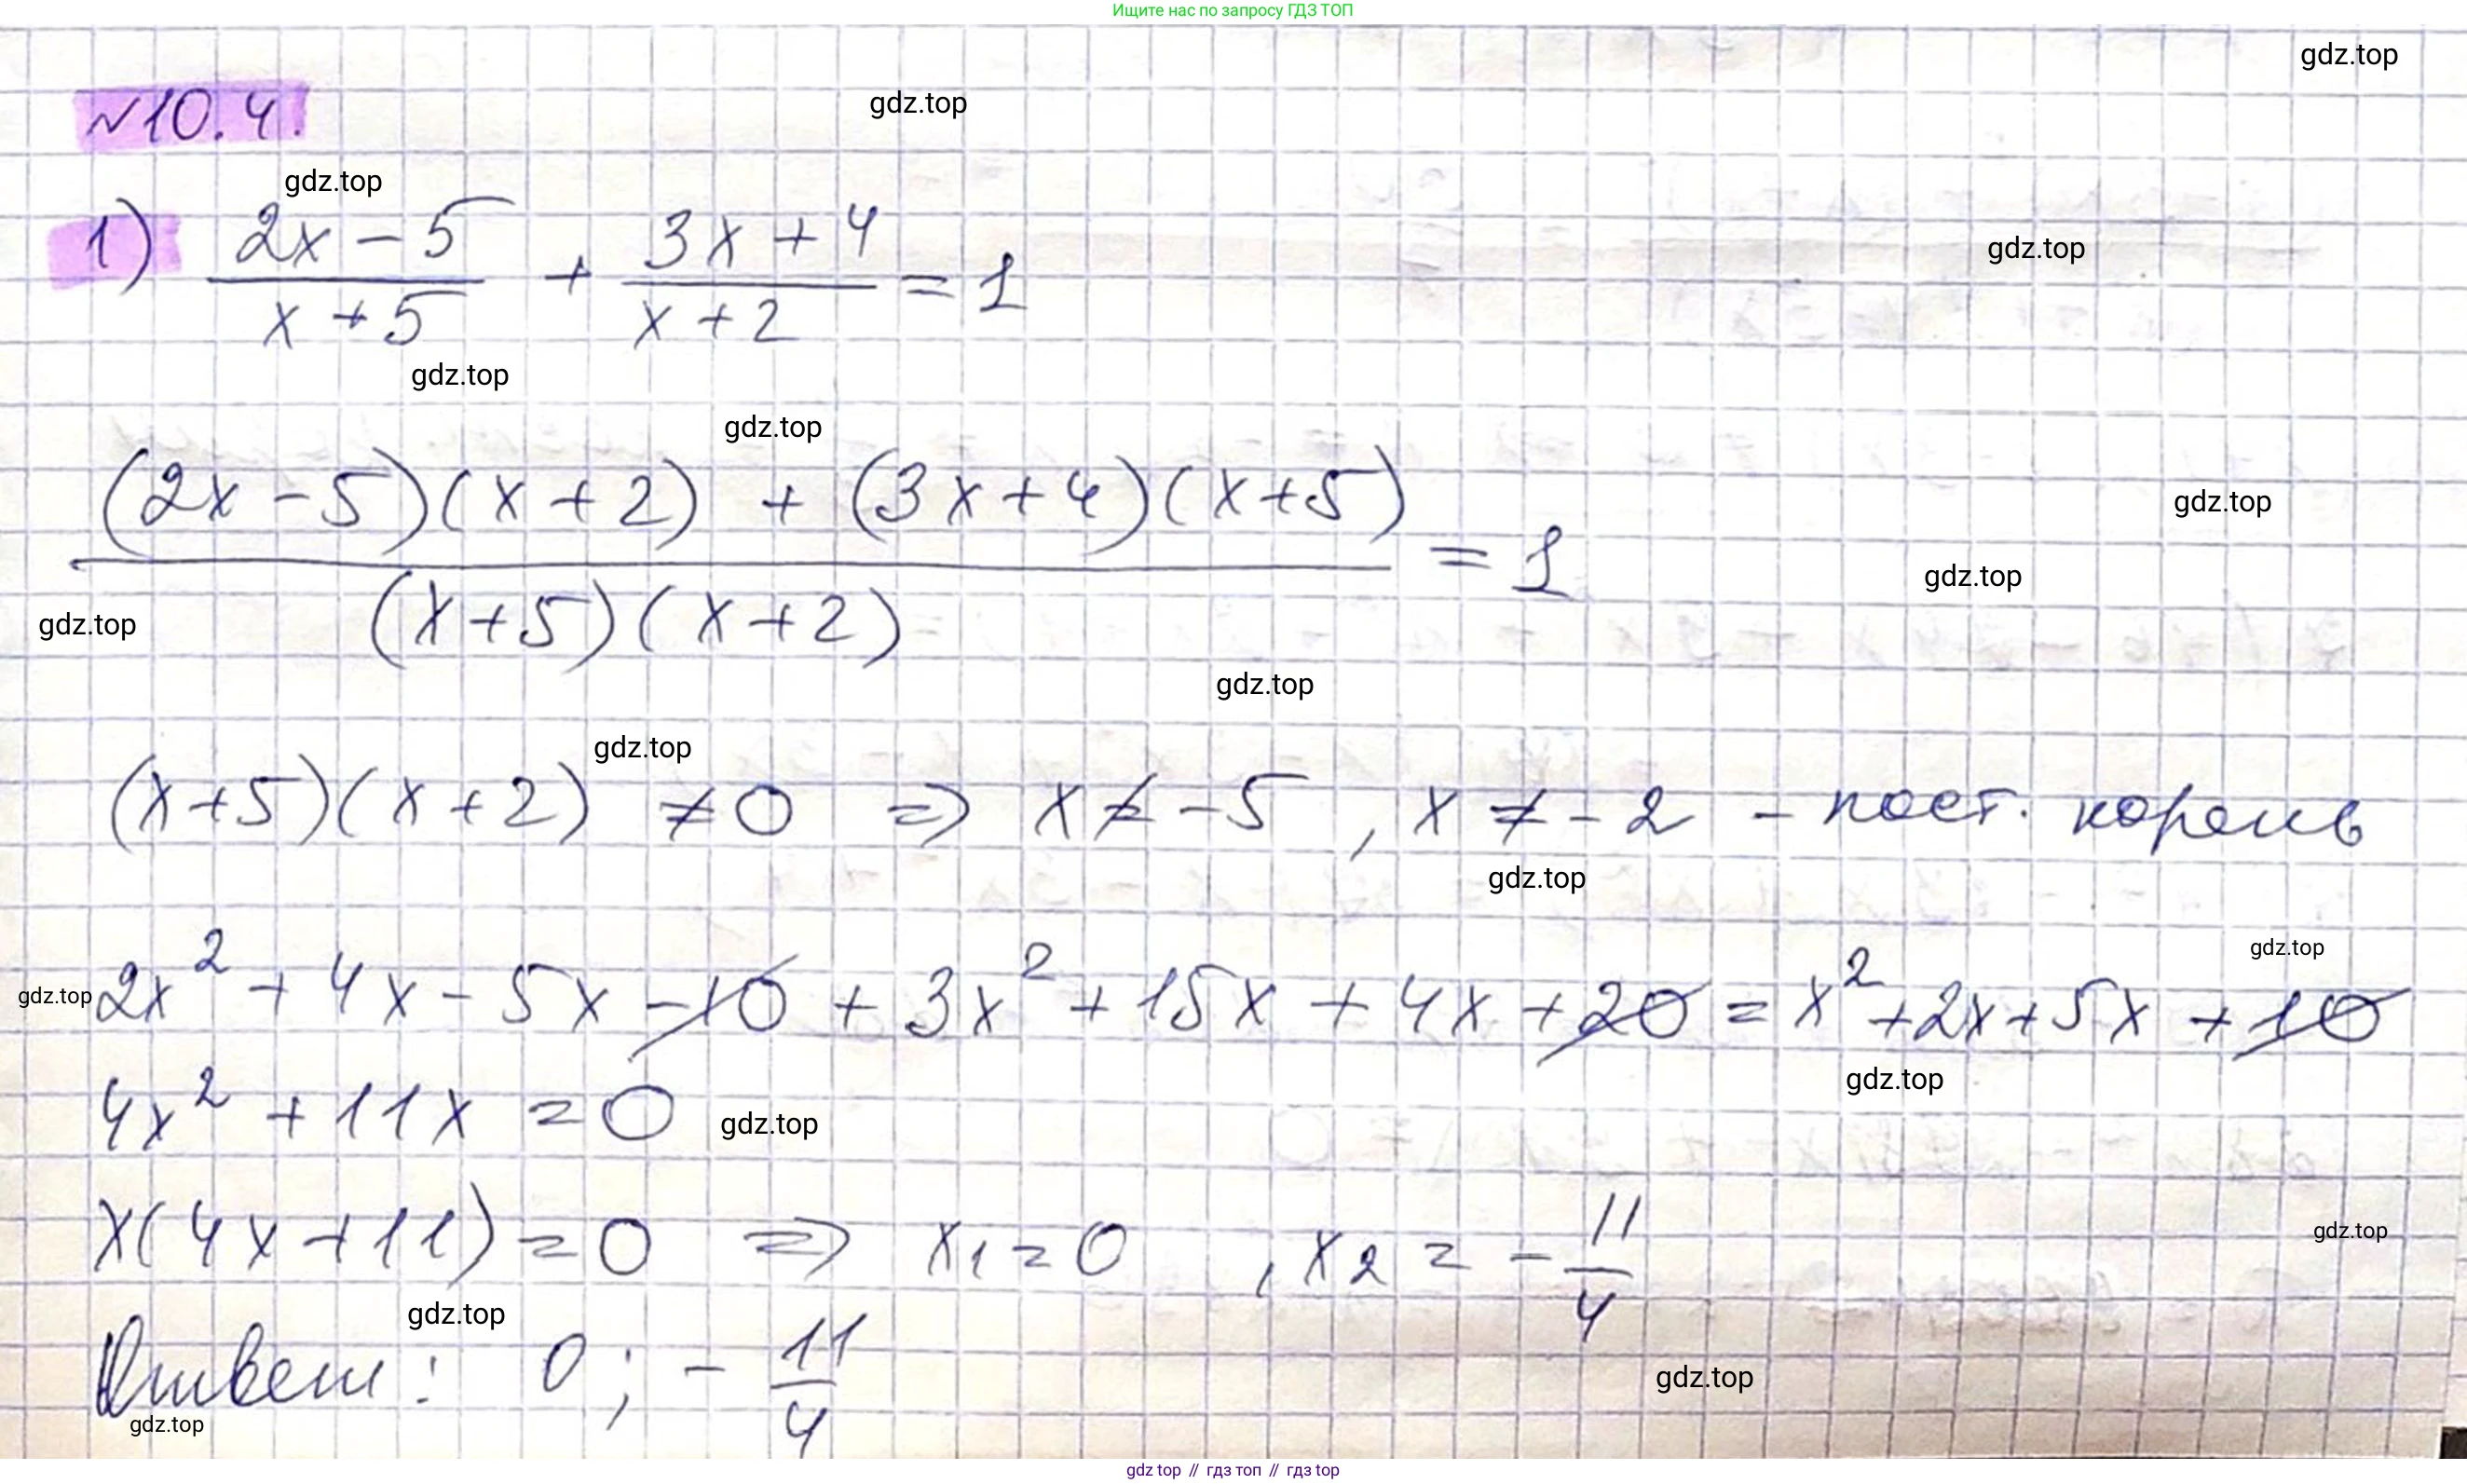 Ищите нас по запросу ГДЗ ТОП
gdz.top
gdz.top
№10.4.
gdz.top
1) (2x-5)/(x+5) + (3x+4)/(x+2) = 1
gdz.top
gdz.top
gdz.top
((2x-5)(x+2) + (3x+4)(x+5))/((x+5)(x+2)) = 1
gdz.top
gdz.top
gdz.top
gdz.top
gdz.top
(x+5)(x+2) ≠ 0 => x ≠ -5, x ≠ -2 - пост. корень
gdz.top
gdz.top
gdz.top
2x² + 4x - 5x - 10 + 3x² + 15x + 4x + 20 = x² + 2x + 5x + 10
gdz.top
4x² + 11x = 0
gdz.top
x(4x+11) = 0 => x₁ = 0, x₂ = -11/4
gdz.top
gdz.top
Ответ: 0; -11/4
gdz.top
gdz.top
gdz top // гдз топ // гдз top